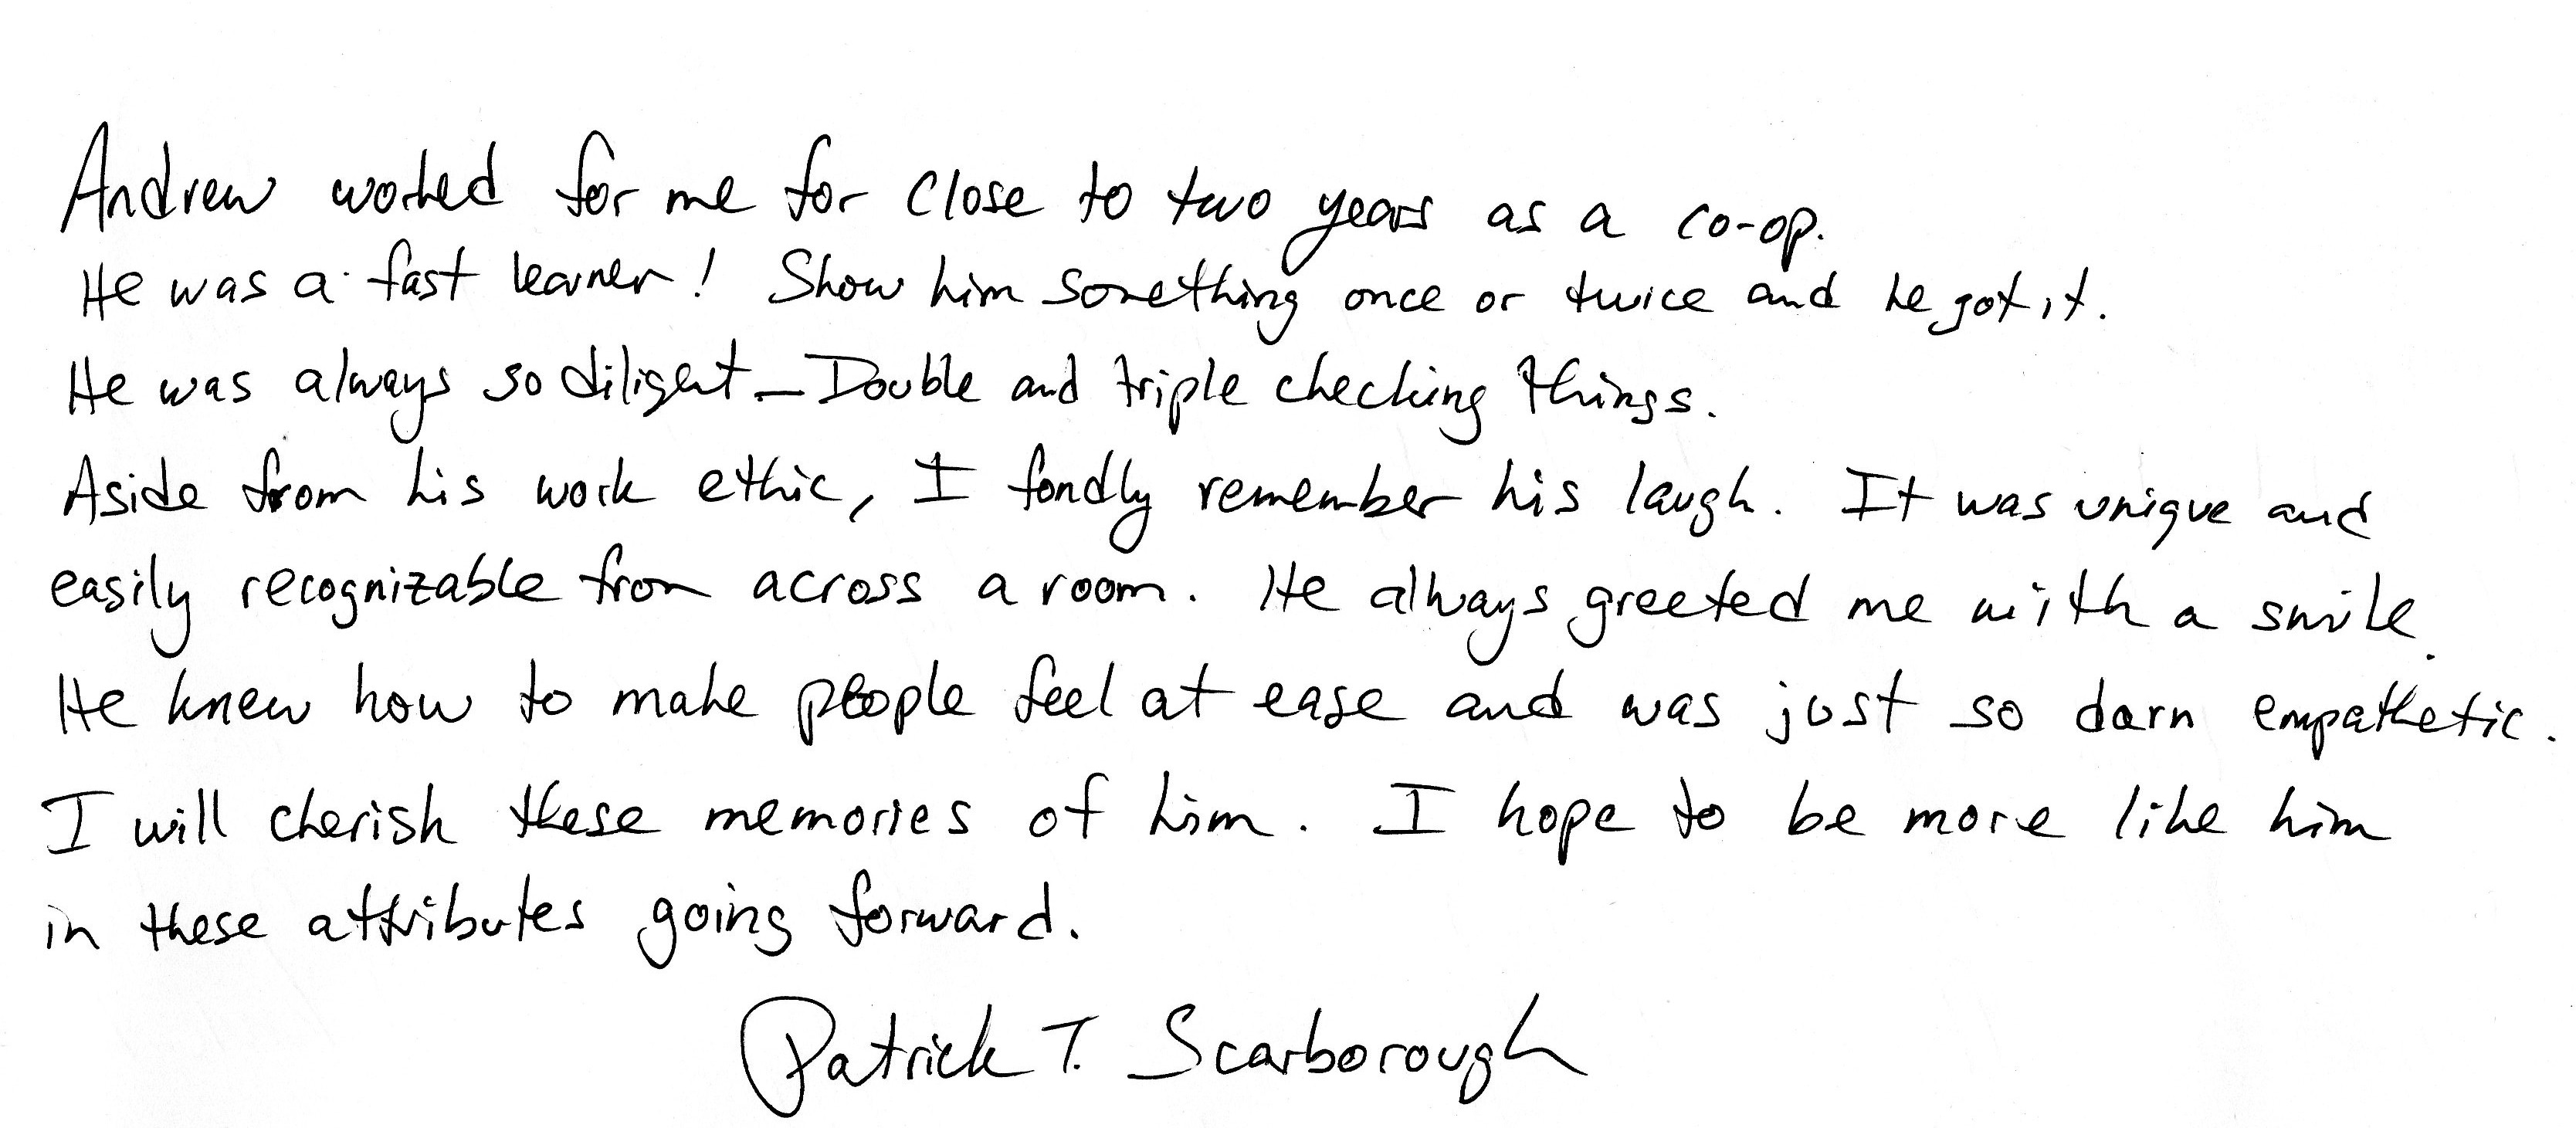 Andrew worked for me for close to two years as a co-op.
He was a fast learner! Show him something once or twice and he got it.
He was always so diligent - Double and triple checking things.
Aside from his work ethic, I fondly remember his laugh. It was unique and
easily recognizable from across a room. He always greeted me with a smile.
He knew how to make people feel at ease and was just so darn empathetic.
I will cherish these memories of him. I hope to be more like him
in these attributes going forward.
Patrick T. Scarborough